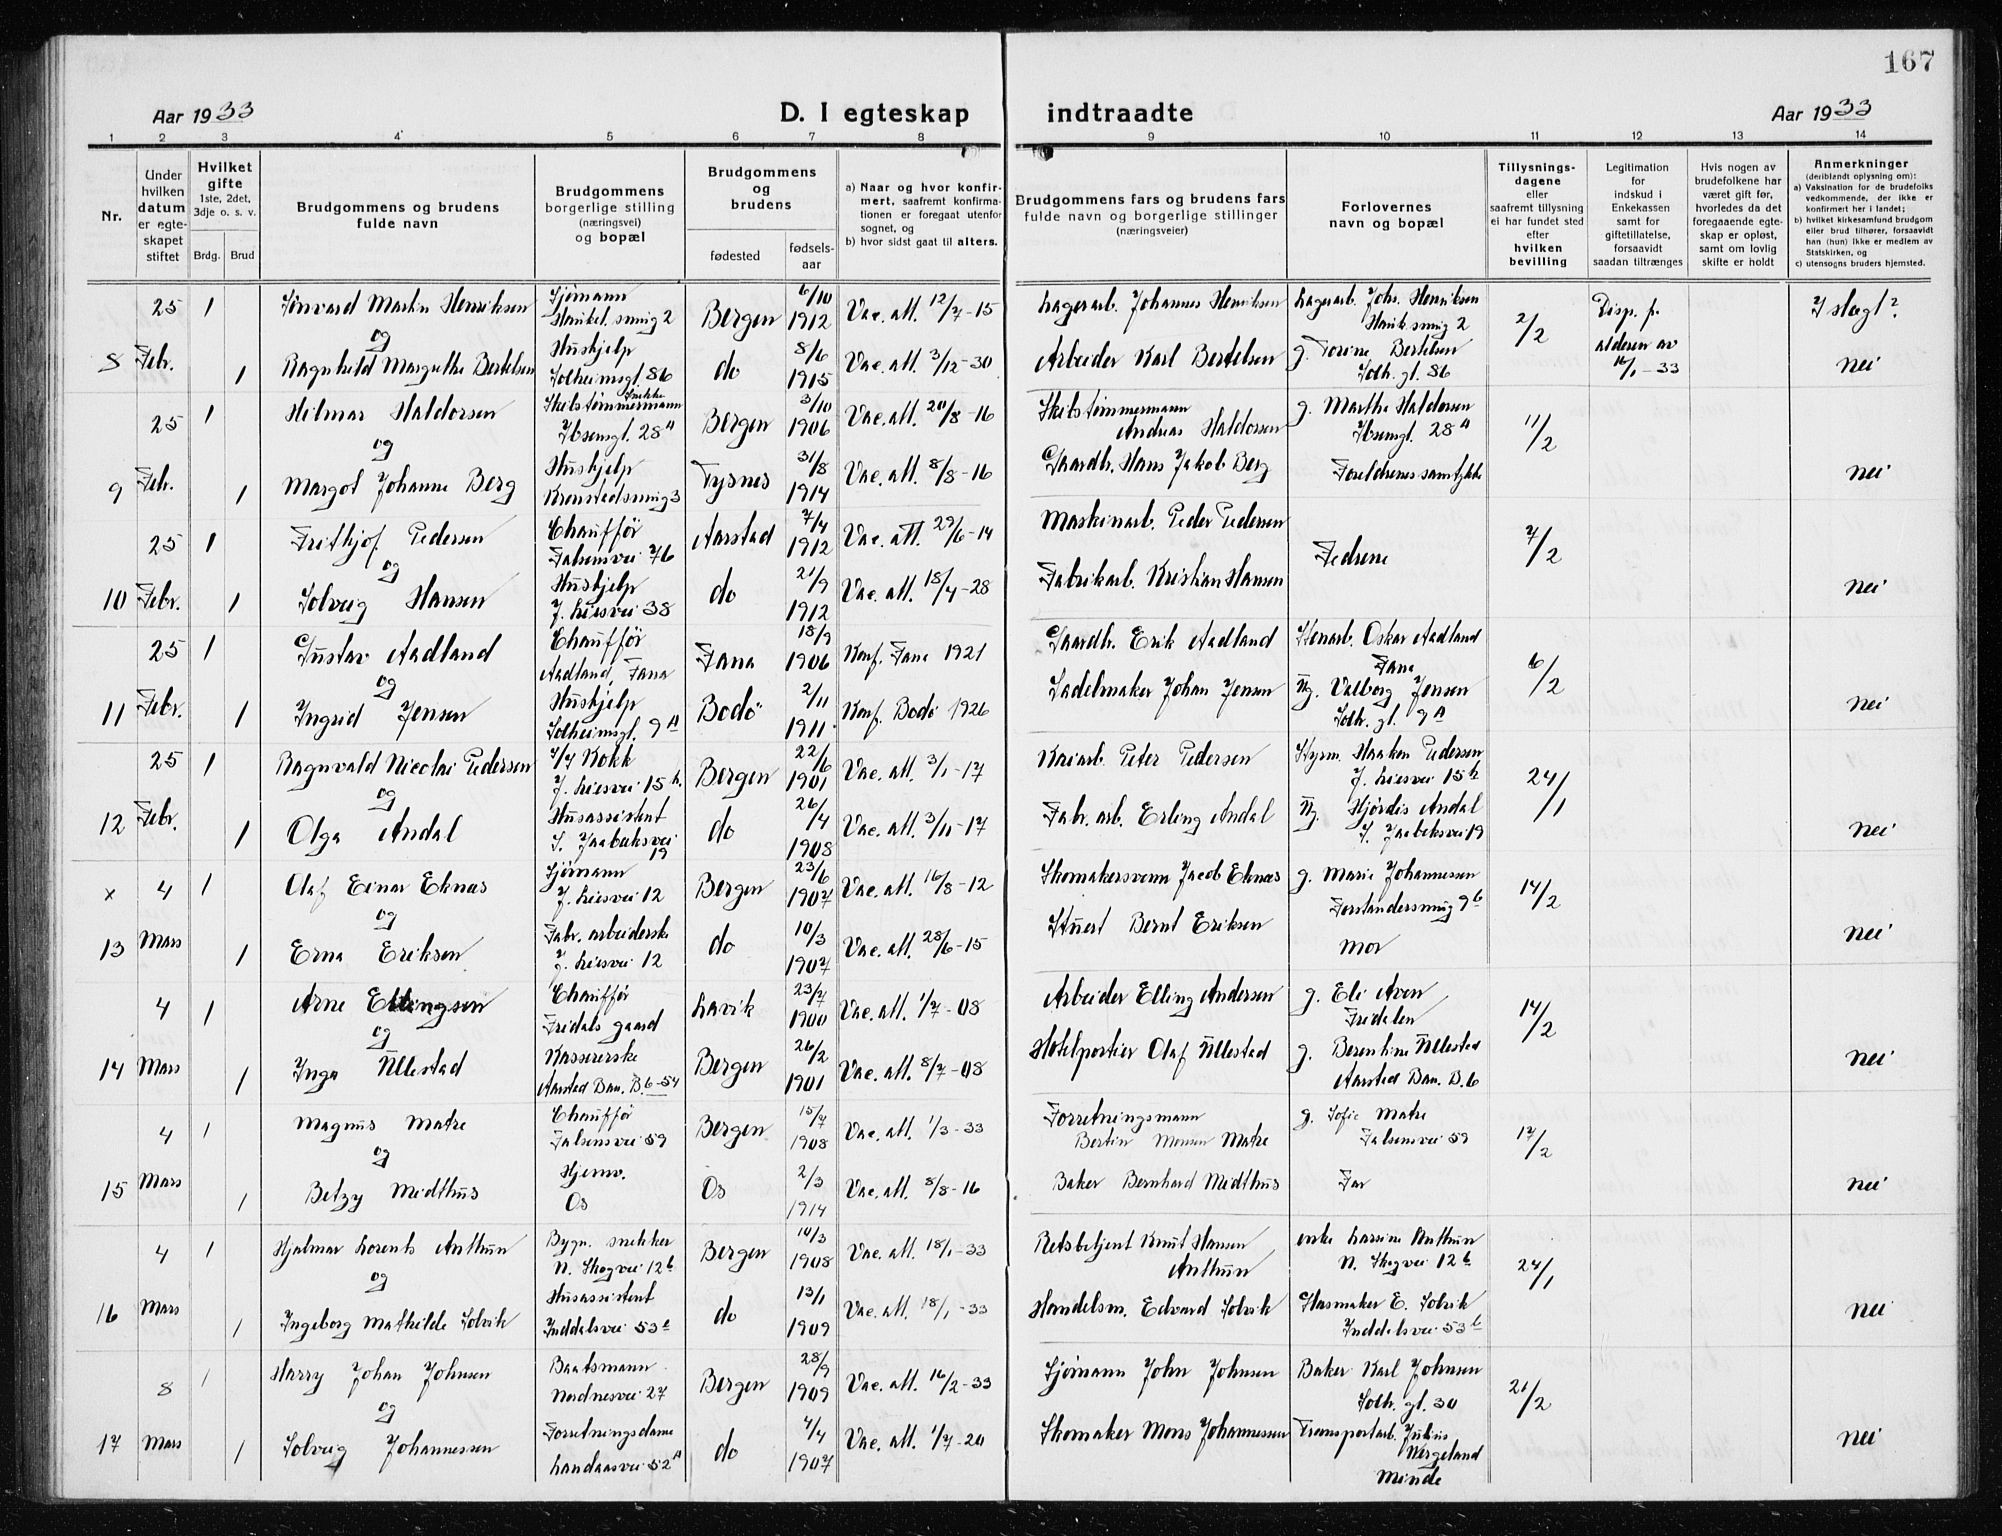 167
Aar 1933
D. I egteskap indtraadte
Aar 1933
1 2 3 4 5 6 7 8 9 10 11 12 13 14
Nr.
Under hvilken datum er egteskapet stiftet
Hvilket gifte 1ste, 2det, 3dje o. s. v.
Brdg. Brud
Brudgommens og brudens fulde navn
Brudgommens borgerlige stilling (næringsvei) og bopæl
Brudgommens og brudens
fødested
fødselsaar
a) Naar og hvor konfirmert, saafremt konfirmationen er foregaat utenfor sognet, og
b) hvor sidst gaat til alters.
Brudgommens fars og brudens fars fulde navn og borgerlige stillinger (næringsveier)
Forlovernes navn og bopæl
Tillysningsdagene eller saafremt tillysning ei har fundet sted efter hvilken bevilling
Legitimation for indskud i Enkekassen samt for giftetillatelse, forsaavidt saadan tiltrænges
Hvis nogen av brudefolkene har været gift før, hvorledes da det foregaaende egteskap er opløst, samt om lovlig skifte er holdt
Anmerkninger (deriblandt oplysning om):
a) Vaksination for de brudefolks vedkommende, der ikke er konfirmert her i landet;
b) hvilket kirkesamfund brudgom eller brud tilhører, forsaavidt han (hun) ikke er medlem av Statskirken, og
c) utensogns bruders hjemsted.
25 1 Martin Henriksen Sjømann Bergen 6/10 1912 Vac. att. 12/7-15 Lagerarb. Johannes Henriksen Lagerarb. Johs. Henriksen 2/2 Disp. f. alderen av 16/1-33 I slegt?
og
8 Febr. 1 Ragnhild Margrethe Bertelsen Hushjelp Solheimsgt. 86 do 8/6 1915 Vac. att. 3/12-30 Arbeider Karl Bertelsen g. Torine Bertelsen Solh. gt. 86 nei
25 1 Hilmar Haldorsen Skibstømmermann Ibsensgt. 28A Bergen 3/10 1906 Vac. att. 20/8-16 Skibstømmermann Andreas Haldorsen g. Marthe Haldorsen Ibsensgt. 28A 11/2
og
9 Feb. 1 Margot Johanne Berg Hushjelp Kronstadsmug 3 Tysnes 31/8 1914 Vac. att. 8/8-16 Gaardbr. Hans Jakob Berg Foreldrenes samtykke nei
25 1 Frithjof Pedersen Chauffør Falsensvei 76 Aarstad 7/4 1912 Vac. att. 29/6-14 Maskinarb. Peder Pedersen Fedrene 7/2
og
10 Febr. 1 Solveig Hansen Hushjelp J. Liesvei 38 do 21/9 1912 Vac. att. 18/4-28 Fabrikarb. Kristian Hansen nei
25 1 Gustav Aadland Chauffør Aadland, Fana Fana 18/9 1906 Konf. Fana 1921 Gaardbr. Erik Aadland Stenarb. Oskar Aadland Fana 6/2
og
11 Febr. 1 Ingrid Jensen Hushjelp Solheimsgt. 9A Bodö 2/11 1911 Konf. Bodö 1926 Sadelmaker Johan Jensen Ug. Valborg Jensen Solh. gt. 9A nei
25 1 Ragnvald Nicolai Pedersen Kokk J. Liesvei 15b. Bergen 22/6 1901 Vac. att. 3/1-17 Kaiarb. Peter Pedersen Styrm. Haakon Pedersen J. Liesvei 15b 24/1
og
12 Febr. 1 Olga Andal Husassistent S. Jaabæksvei 19 do 26/4 1908 Vac. att. 3/11-17 Fabr. arb. Erling Andal Ug. Hjørdis Andal S. Jaabeksvei 19 nei
x 4 1 Olaf Einar Eknas Sjømann J. Liesvei 12 Bergen 23/6 1907 Vac. att. 16/8-12 Skomakersvenn Jacob Eknæs g. Marie Johannessen Forstandersmug 9b 14/2
og
13 Mars 1 Erna Eriksen Fabr. arbeiderske J. Liesvei 12 do 10/3 1907 Vac. att. 28/6-15 Stuert Bernt Eriksen Mor nei
4 1 Arne Ellingsen Chauffør Fridals gaard Lavik 23/7 1900 Vac. att. 1/7-08 Arbeider Elling Andersen g. Eli Aven Fridalen 14/2
og
14 Mars 1 Inga Ullestad Kassererske Aarstad Ban. B. 6-54 Bergen 26/2 1901 Vac. att. 8/7-08 Hotelportier Olaf Ullestad g. Berentine Ullestad Aarsted Ban. B. 6 nei
4 1 Magnus Matre Chauffør Falsensvei 59 Bergen 15/7 1908 Vac. att. 1/3-33 Forretningsmann Bertin Monsen Matre g. Sofie Matre Falsensvei 59 17/2
og
15 Mars 1 Betzy Midthus Hjemv. Os Os 2/3 1914 Vac. att. 8/8-16 Baker Bernhard Midthus Far nei
4 1 Hjalmar Lorents Anthun Bygn. snekker N. Skogvei 12b Bergen 10/3 1908 Vac. att. 18/1-33 Retsbetjent Knut Hansen Anthun enke Larsine Anthun N. Skogvei 12b 24/1
og
16 Mars 1 Ingeborg Mathilde Solvik Husassistent Inddalsvei 53b do 13/1 1909 Vac. att. 18/1-33 Handelsm. Edvard Solvik Glasmaker E. Solvik Inddalsvei 53b nei
8 1 Harry Johan Johnsen Baatsmann Nordnesvei 27 Bergen 28/9 1909 Vac. att. 16/2-33 Sjømann John Johnsen Baker Karl Johnsen Solh. gt. 30 21/2
og
17 Mars 1 Solveig Johannessen Forretningsdame Landaasvei 52A do 4/4 1907 Vac. att. 1/7-20 Skomaker Mons Johannessen Transportarb. Julius Wergeland Minde nei